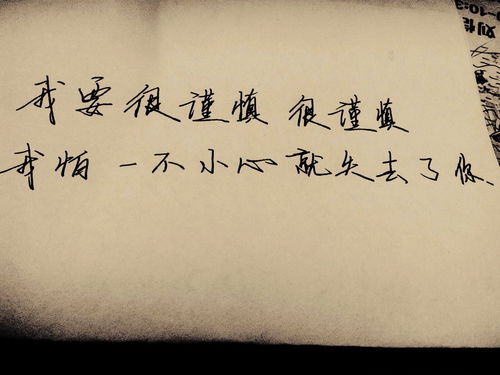 我要很谨慎 很谨慎
我怕一不小心就失去了你、